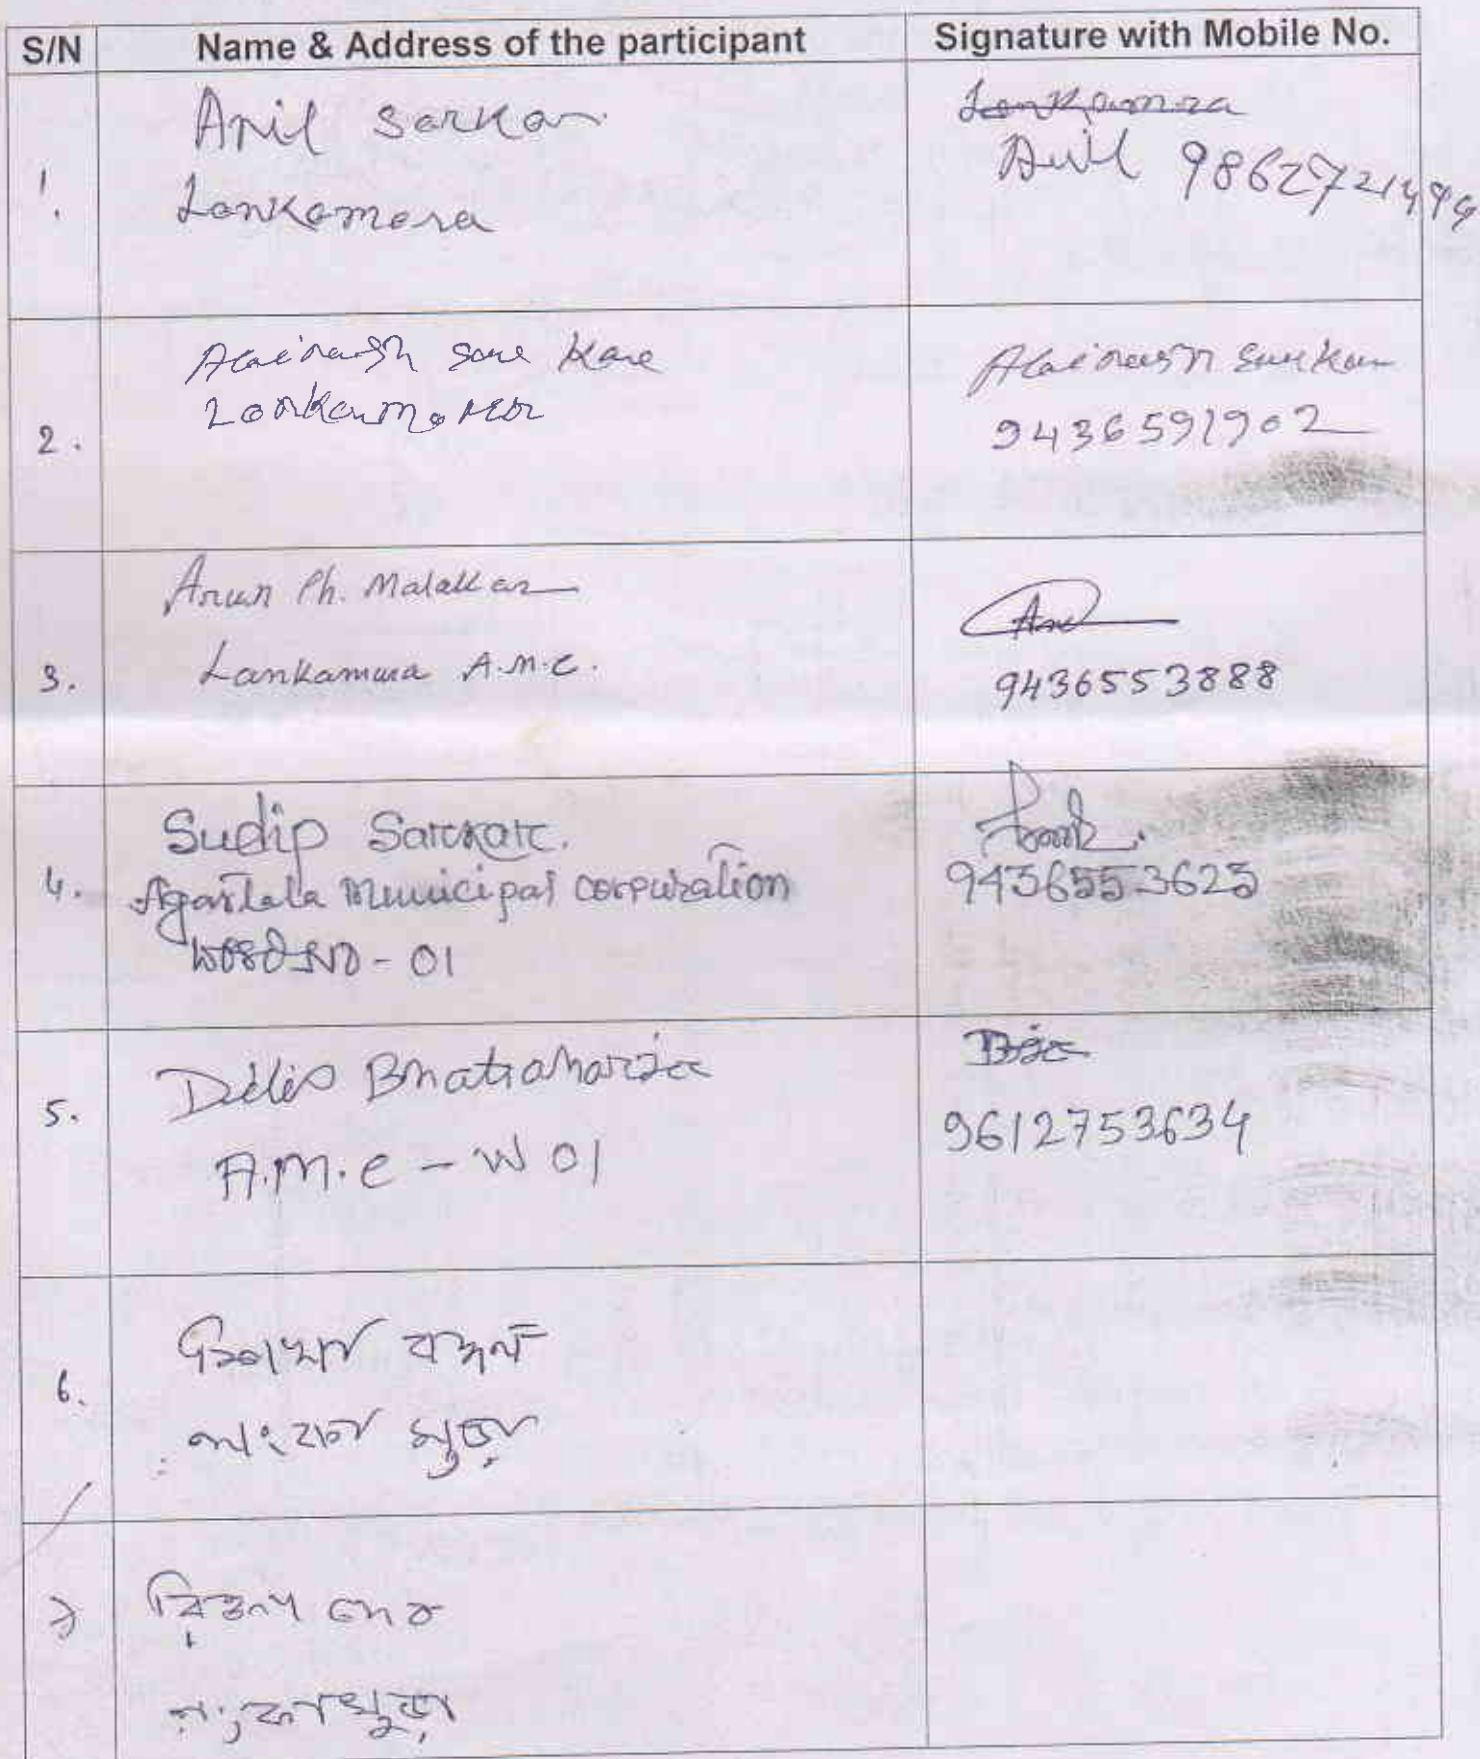 S/N Name & Address of the participant Signature with Mobile No.
1. Anil Sarkar
Lankamura
Anil 9862721494
2. Abinash Sarkar
Lankamura
Abinash Sarkar
9436591902
3. Arun Ch. Malakar
Lankamura A.M.C.
9436553888
4. Sudip Sarkar.
Agartala Municipal corporation
Word No - 01
9436553623
5. Dilip Bhattaharjee
A.M.C - W 01
9612753634
6.
লংকা মুড়া
৭
লংকামুড়া